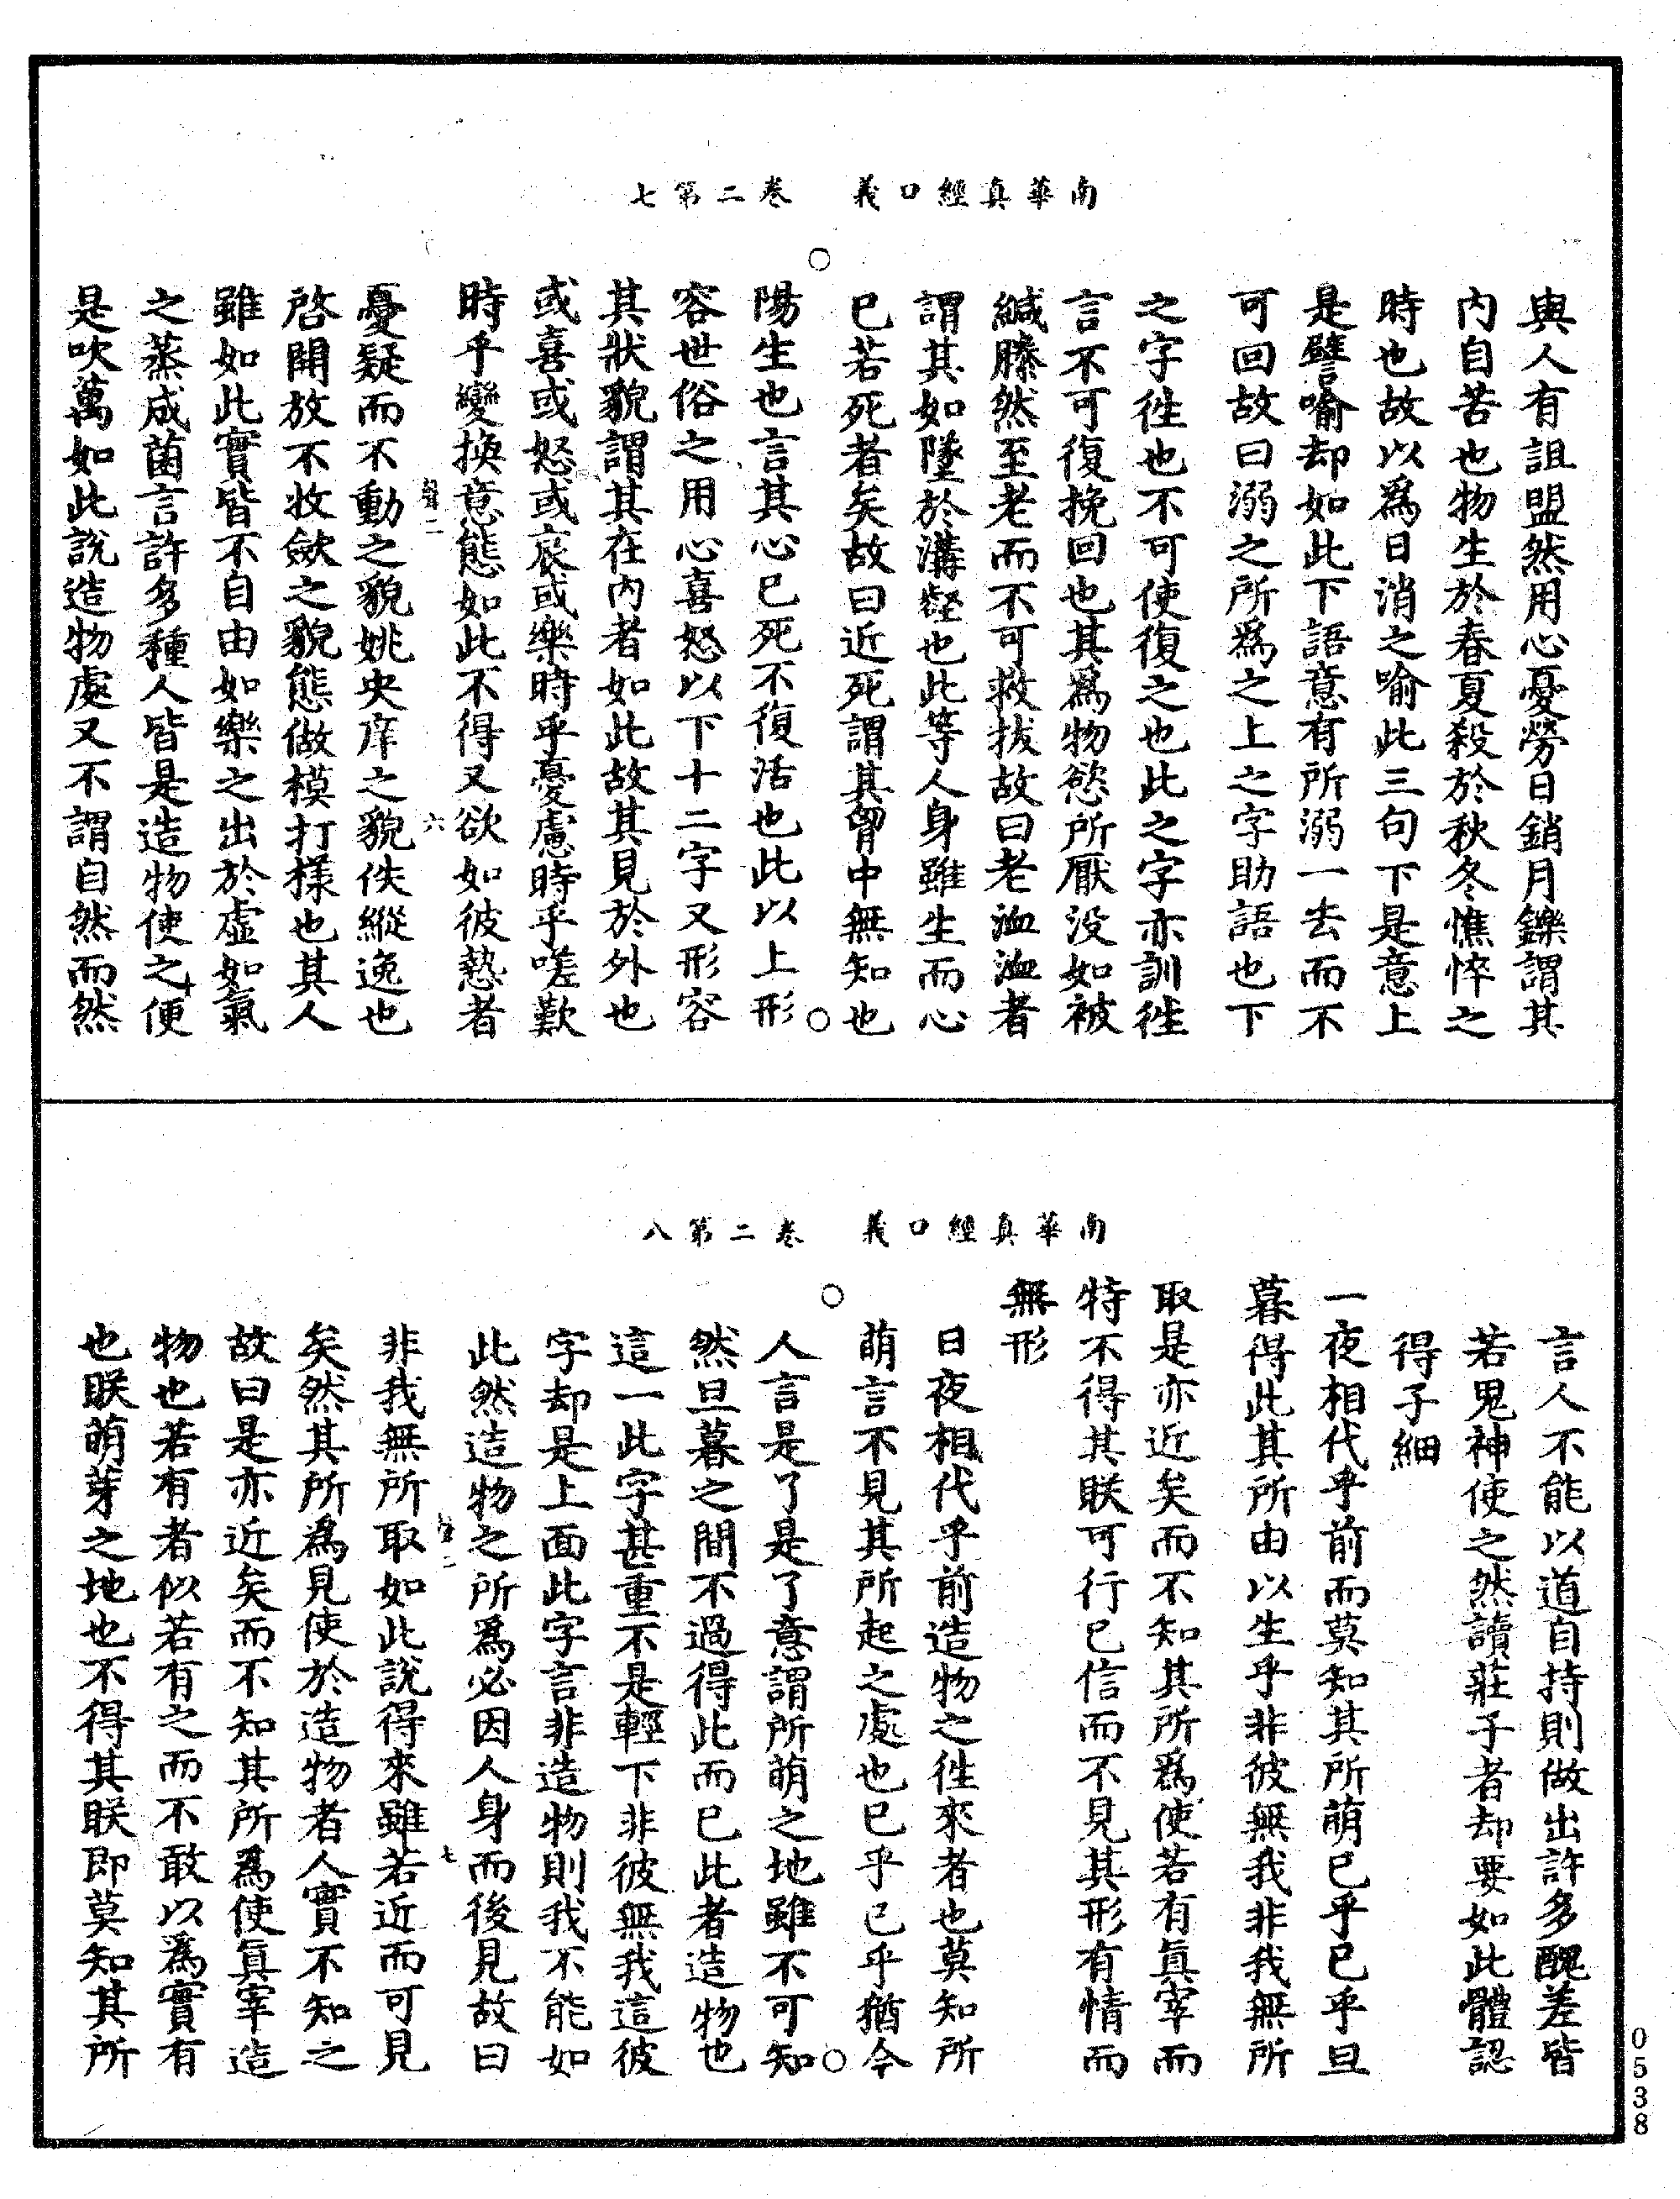 南華真經口義　卷二第七
與人有詛盟然用心憂勞日銷月鑠謂其
內自苦也物生於春夏殺於秋冬憔悴之
時也故以爲日消之喻此三句下是意上
是譬喻却如此下語意有所溺一去而不
可回故曰溺之所爲之上之字助語也下
之字徃也不可使復之也此之字亦訓徃
言不可復挽回也其爲物慾所厭没如被
緘縢然至老而不可救拔故曰老洫洫者
謂其如墜於溝壑也此等人身雖生而心
已若死者矣故曰近死謂其胷中無知也
陽生也言其心已死不復活也此以上形
容世俗之用心喜怒以下十二字又形容
其狀貌謂其在內者如此故其見於外也
或喜或怒或哀或樂時乎憂慮時乎嗟歎
時乎變換意態如此不得又欲如彼慹者
憂疑而不動之貌姚央庠之貌佚縱逸也
啓開放不收斂之貌態做模打樣也其人
雖如此實皆不自由如樂之出於虛如氣
之蒸成菌言許多種人皆是造物使之便
是吹萬如此說造物處又不謂自然而然
南華真經口義　卷二第八
言人不能以道自持則做出許多醜差皆
若鬼神使之然讀莊子者却要如此體認
得子細
一夜相代乎前而莫知其所萌已乎已乎旦
暮得此其所由以生乎非彼無我非我無所
取是亦近矣而不知其所爲使若有真宰而
特不得其眹可行已信而不見其形有情而
無形
日夜相代乎前造物之徃來者也莫知所
萌言不見其所起之處也已乎已乎猶今
人言是了是了意謂所萌之地雖不可知
然旦暮之間不過得此而已此者造物也
這一此字甚重不是輕下非彼無我這彼
字却是上面此字言非造物則我不能如
此然造物之所爲必因人身而後見故曰
非我無所取如此說得來雖若近而可見
矣然其所爲見使於造物者人實不知之
故曰是亦近矣而不知其所爲使真宰造
物也若有者似若有之而不敢以爲實有
也眹萌芽之地也不得其眹即莫知其所
0538